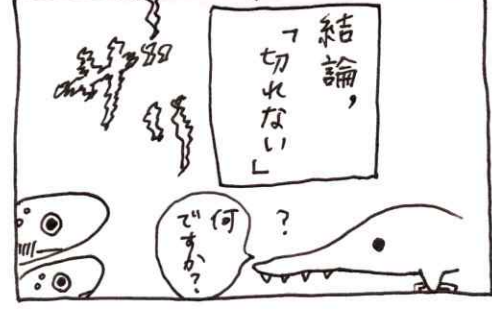 結論，
「切れない」
?
何
ですか?